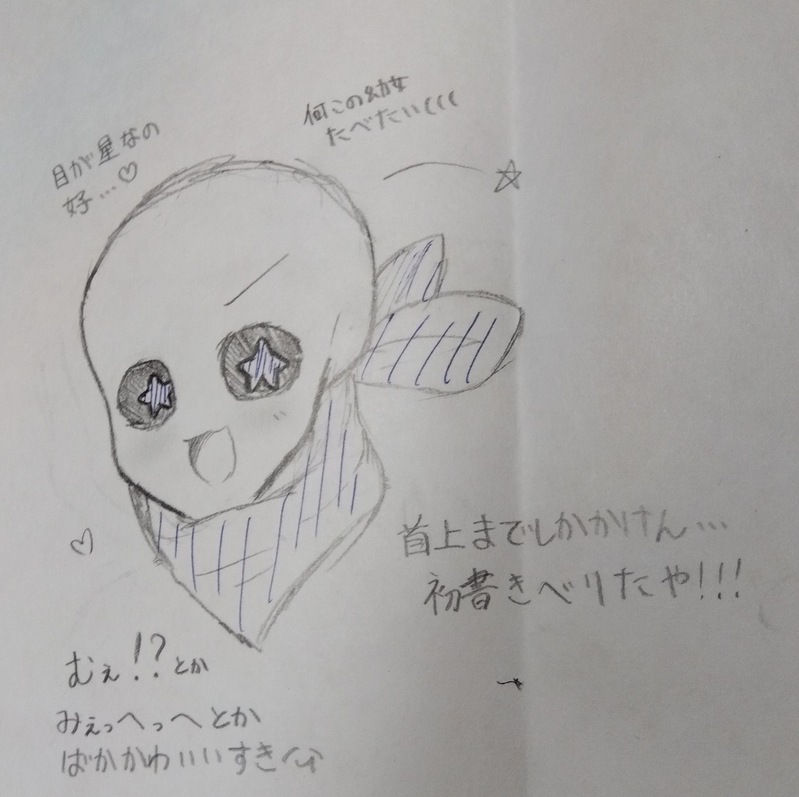 何この幼女
たべたい(((
目が星なの
好…♡
首上までしかかけん…
初書きべりたや!!!
むぇ!?とか
みぇっへっへとか
ばかかわいいすき